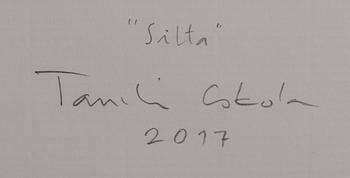 "Silta"
Taneli Eskola
2017